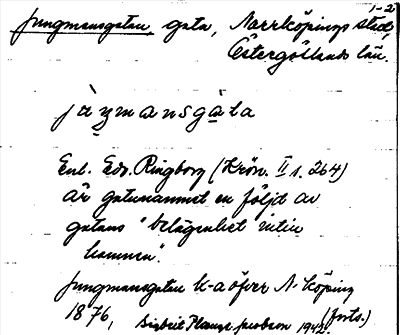 1-2
Jungmansgatan, gata, Norrköpings stad,
Östergötlands län.
Enl. Edv. Ringborg (Krön. II s. 264)
är gatunamnet en följd av
gatans "belägenhet intill
hamnen".
Jungmansgatan k-a öfver N-köping
1876, (forts.)
1942.